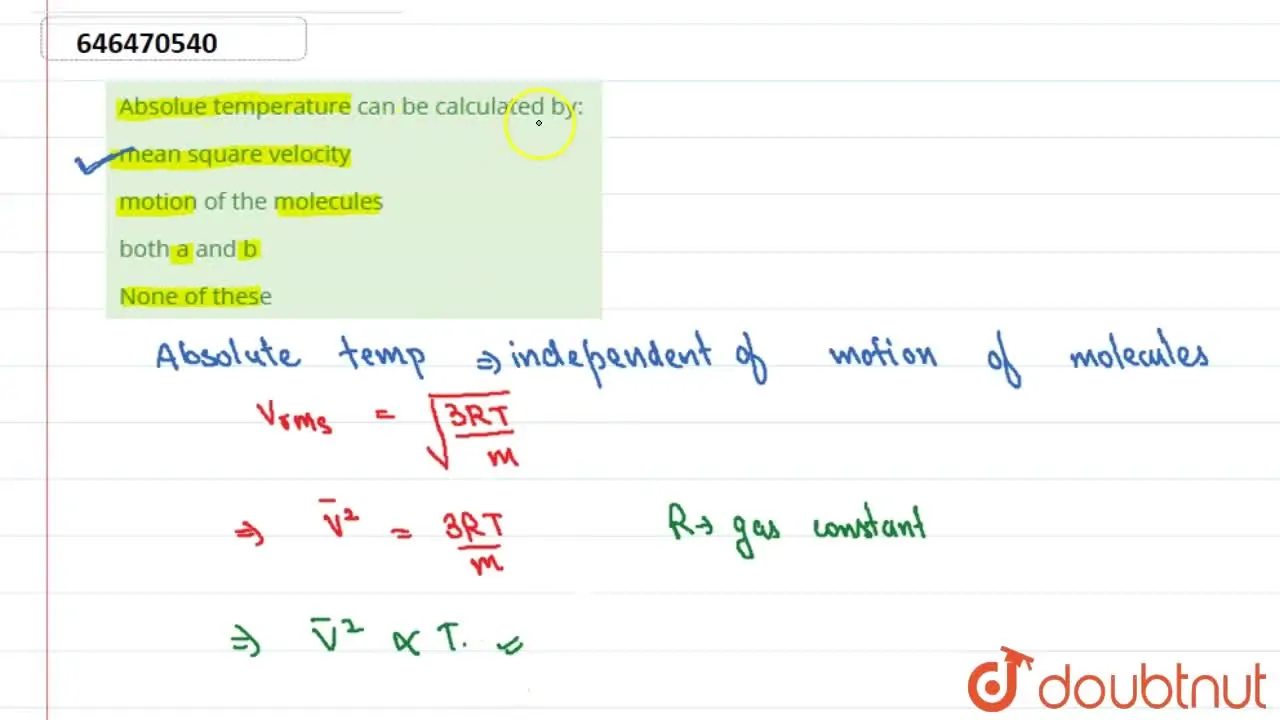 646470540
Absolue temperature can be calculated by:
mean square velocity
motion of the molecules
both a and b
None of these
Absolute temp ⇒ independent of motion of molecules
Vrms = √(3RT/m)
⇒ V̄² = 3RT/m R→ gas constant
⇒ V̄² ∝ T.
doubtnut